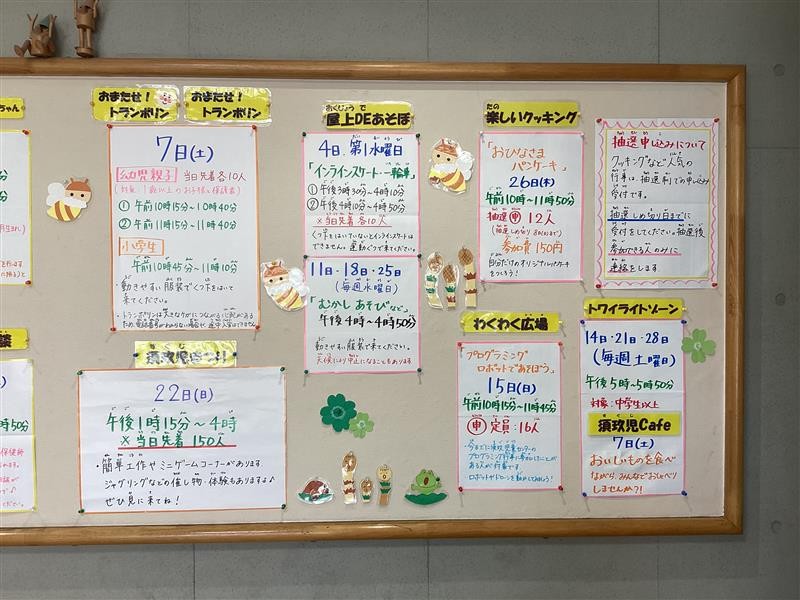 ちゃん
談
おまたせ！
トランポリン
おまたせ！
トランポリン
7日(土)
幼児親子 当日先着各10人
① 午前10時15分～10時40分
② 午前11時15分～11時40分
小学生
午前10時45分～11時10分
動きやすい服装でくつ下をはいて
来てください。
須玖児まつり
22日(日)
午後1時15分～4時
×当日先着 150人
・簡単工作やミニゲームコーナーがあります
ジャグリングなどの催し物・体験もありますよ♪
ぜひ見に来てね！
おくじょう で
屋上DEあそぼ
4日.第1水曜日
「インラインスケート・一輪車」
① 午後3時30分～4時10分
② 午後4時10分～4時50分
×当日先着 各10人
くつ下をはいていないとインラインスケートは
できません。運動ぐつで来てください。
11日・18日・25日
(毎週水曜日)
「むかしあそびなど」
午後4時～4時50分
動きやすい服装で来てください。
天候により中止になることもあります
たの
楽しいクッキング
「おひなさま
パンケーキ」
26日(木)
午前10時～11時50分
抽選 申 12人
参加費 150円
自分だけのオリジナルパンケーキ
をつくろう！
抽選申し込みについて
クッキングなど人気の
行事は、抽選制での申し込み
受付です。
抽選しめ切り日までに
受付をしてください。抽選後
参加できる人のみに
連絡をします。
わくわく広場
プログラミング
ロボットであそぼう」
15日(日)
午前10時15分～11時45分
申 定員：16人
ロボットやドローンを動かしてみよう！
トワイライトゾーン
14日・21日・28日
(毎週土曜日)
午後5時～5時50分
対象：中学生以上
須玖児Cafe
7日(土)
おいしいものを食べ
ながら、みんなでおしゃべり
しませんか？！